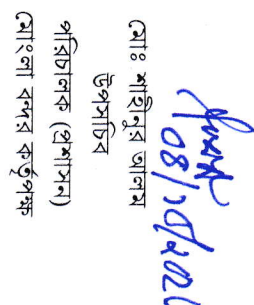 ০৪/১০/২০২
মোঃ শাহিনুর আলম
উপসচিব
পরিচালক (প্রশাসন)
মোংলা বন্দর কর্তৃপক্ষ